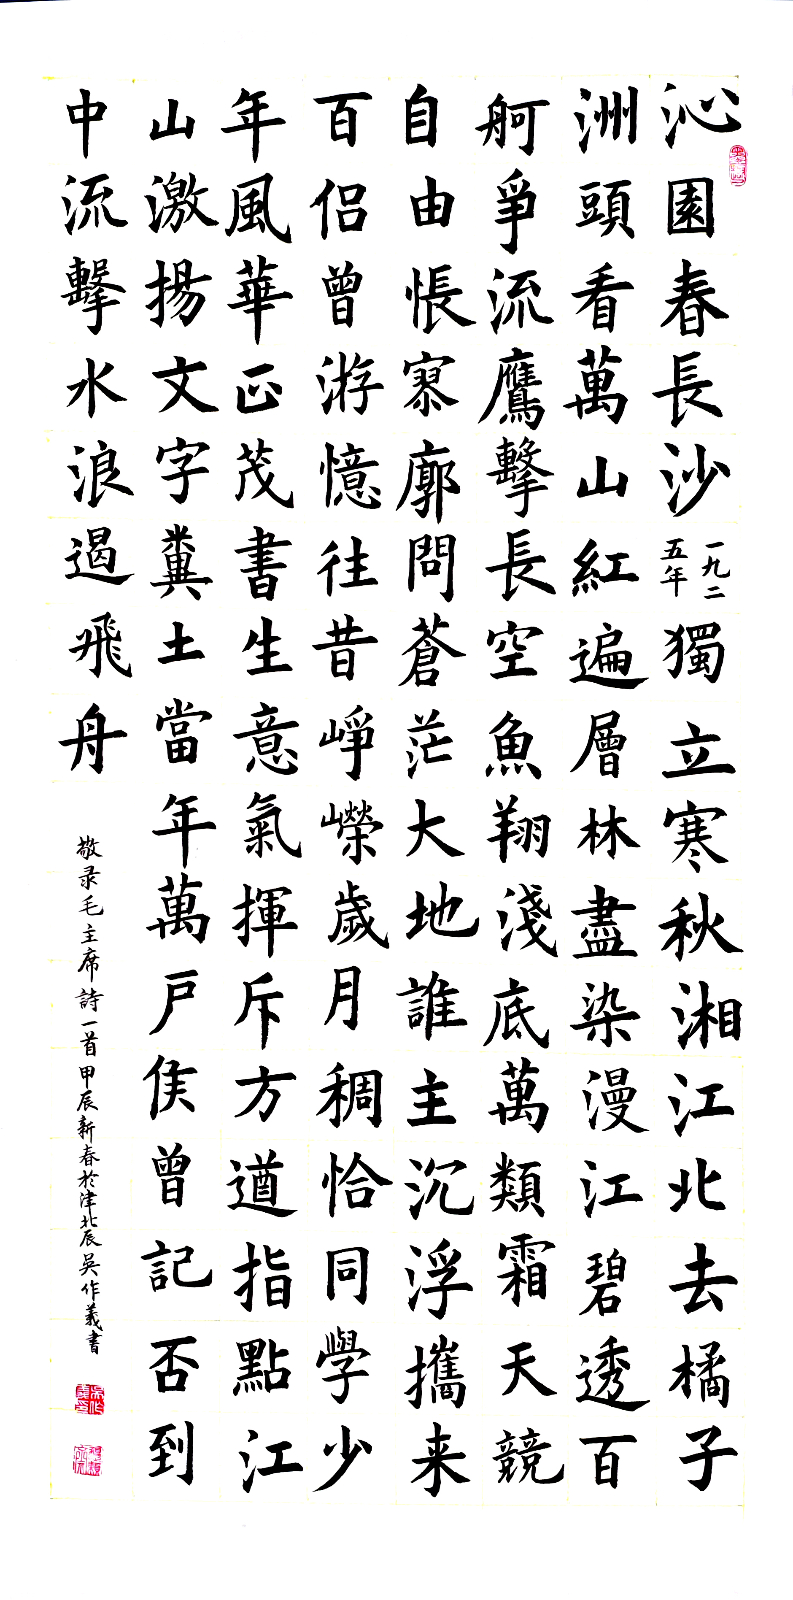 沁園春長沙一九二五年獨立寒秋湘江北去橘子
洲頭看萬山紅遍層林盡染漫江碧透百
舸爭流鷹擊長空魚翔淺底萬類霜天競
自由悵寥廓問蒼茫大地誰主沉浮攜来
百侶曾游憶往昔崢嶸歲月稠恰同學少
年風華正茂書生意氣揮斥方遒指點江
山激揚文字糞土當年萬戶侯曾記否到
中流擊水浪遏飛舟
敬录毛主席詩一首甲辰新春於津北辰吳作義書